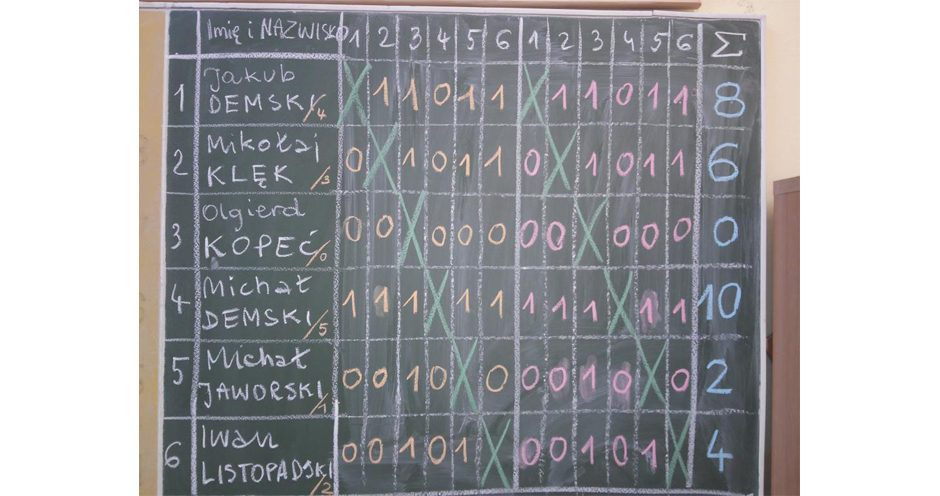 Imię i NAZWISKO 1 2 3 4 5 6 1 2 3 4 5 6 Σ
1 Jakub DEMSKI /4 X 1 1 0 1 1 X 1 1 0 1 1 8
2 Mikołaj KLĘK /3 0 X 1 0 1 1 0 X 1 0 1 1 6
3 Olgierd KOPEĆ /0 0 0 X 0 0 0 0 0 X 0 0 0 0
4 Michał DEMSKI /5 1 1 1 X 1 1 1 1 1 X 1 1 10
5 Michał JAWORSKI /1 0 0 1 0 X 0 0 0 1 0 X 0 2
6 Iwan LISTOPADSKI /2 0 0 1 0 1 X 0 0 1 0 1 X 4